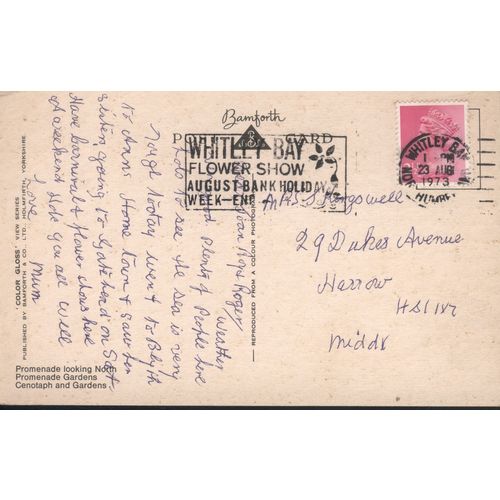 Bamforth
POST CARD
WHITLEY BAY
FLOWER SHOW
AUGUST BANK HOLIDAY
WEEK-END
WHITLEY BAY
1 - PM
23 AUG
1973
29 Dukes Avenue
Harrow
Middx
Boys Roger
Weather
good plenty of People here
to see the Sea is very
rough Nootay went to Blyth
to Anns Home town & saw her
sister going to Gateshead on Sat
Have carnival & flower shows here
at weekend Hope you are all well
Love
Mum
REPRODUCED FROM A COLOUR PHOTOGRAPH
"COLOR GLOSS" VIEW SERIES BY
PUBLISHED BY BAMFORTH & CO. LTD., HOLMFIRTH, YORKSHIRE.
Promenade looking North
Promenade Gardens
Cenotaph and Gardens